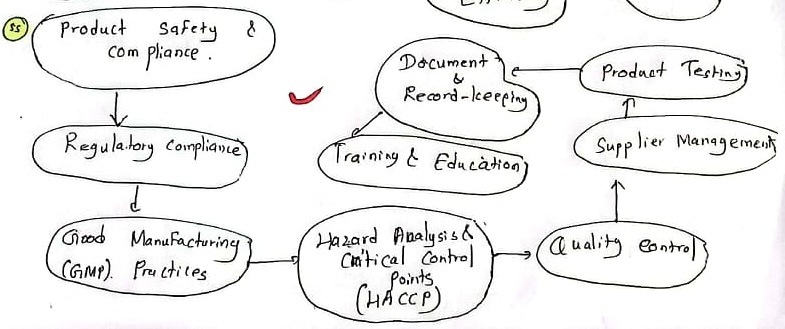 55
Product Safety &
compliance.
Regulatory compliance
Good Manufacturing
(GMP). Practices
Hazard Analysis &
Critical Control
Points
(HACCP)
Quality control
Supplier Management
Product Testing
Document
&
Record-keeping
Training & Education